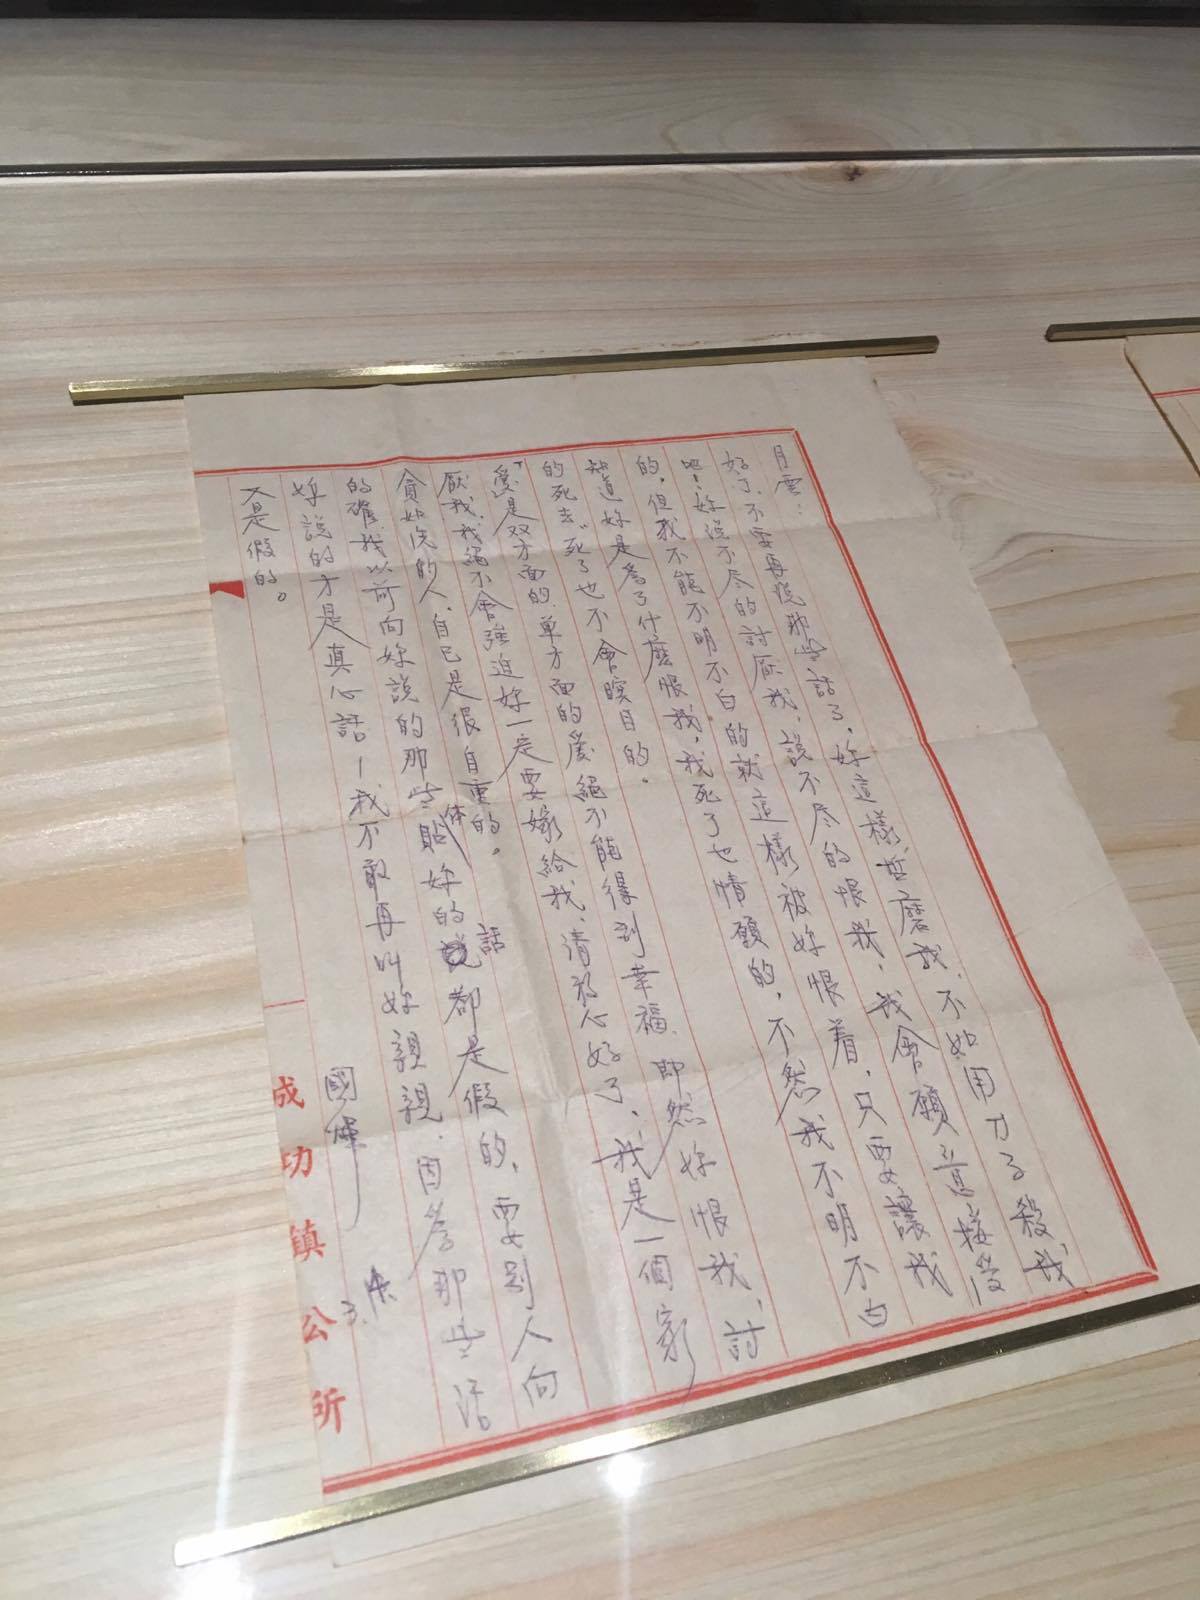 月雲：
好了，不要再說那些話了，妳這樣哲磨我，不如用刀子殺我
吧！妳說不尽的討厭我，說不尽的恨我，我會願意接受
的，但我不能不明不白的就這樣被妳恨着，只要讓我
知道妳是為了什麼恨我，我死了也情願的，不然我不明不白
的死去，死了也不會瞑目的。
「愛」是双方面的，单方面的愛絕不能得到幸福，即然妳恨我、討
厭我，我絕不會強迫妳一定要嫁給我，請放心好了，我是一個家
貧如洗的人，自己是很自重的。
的確我以前向妳說的那些貼体妳的話都是假的，要別人向
妳說的才是真心話！我不敢再叫妳親親，因為那些話
又是假的。
國輝
成功鎮公所